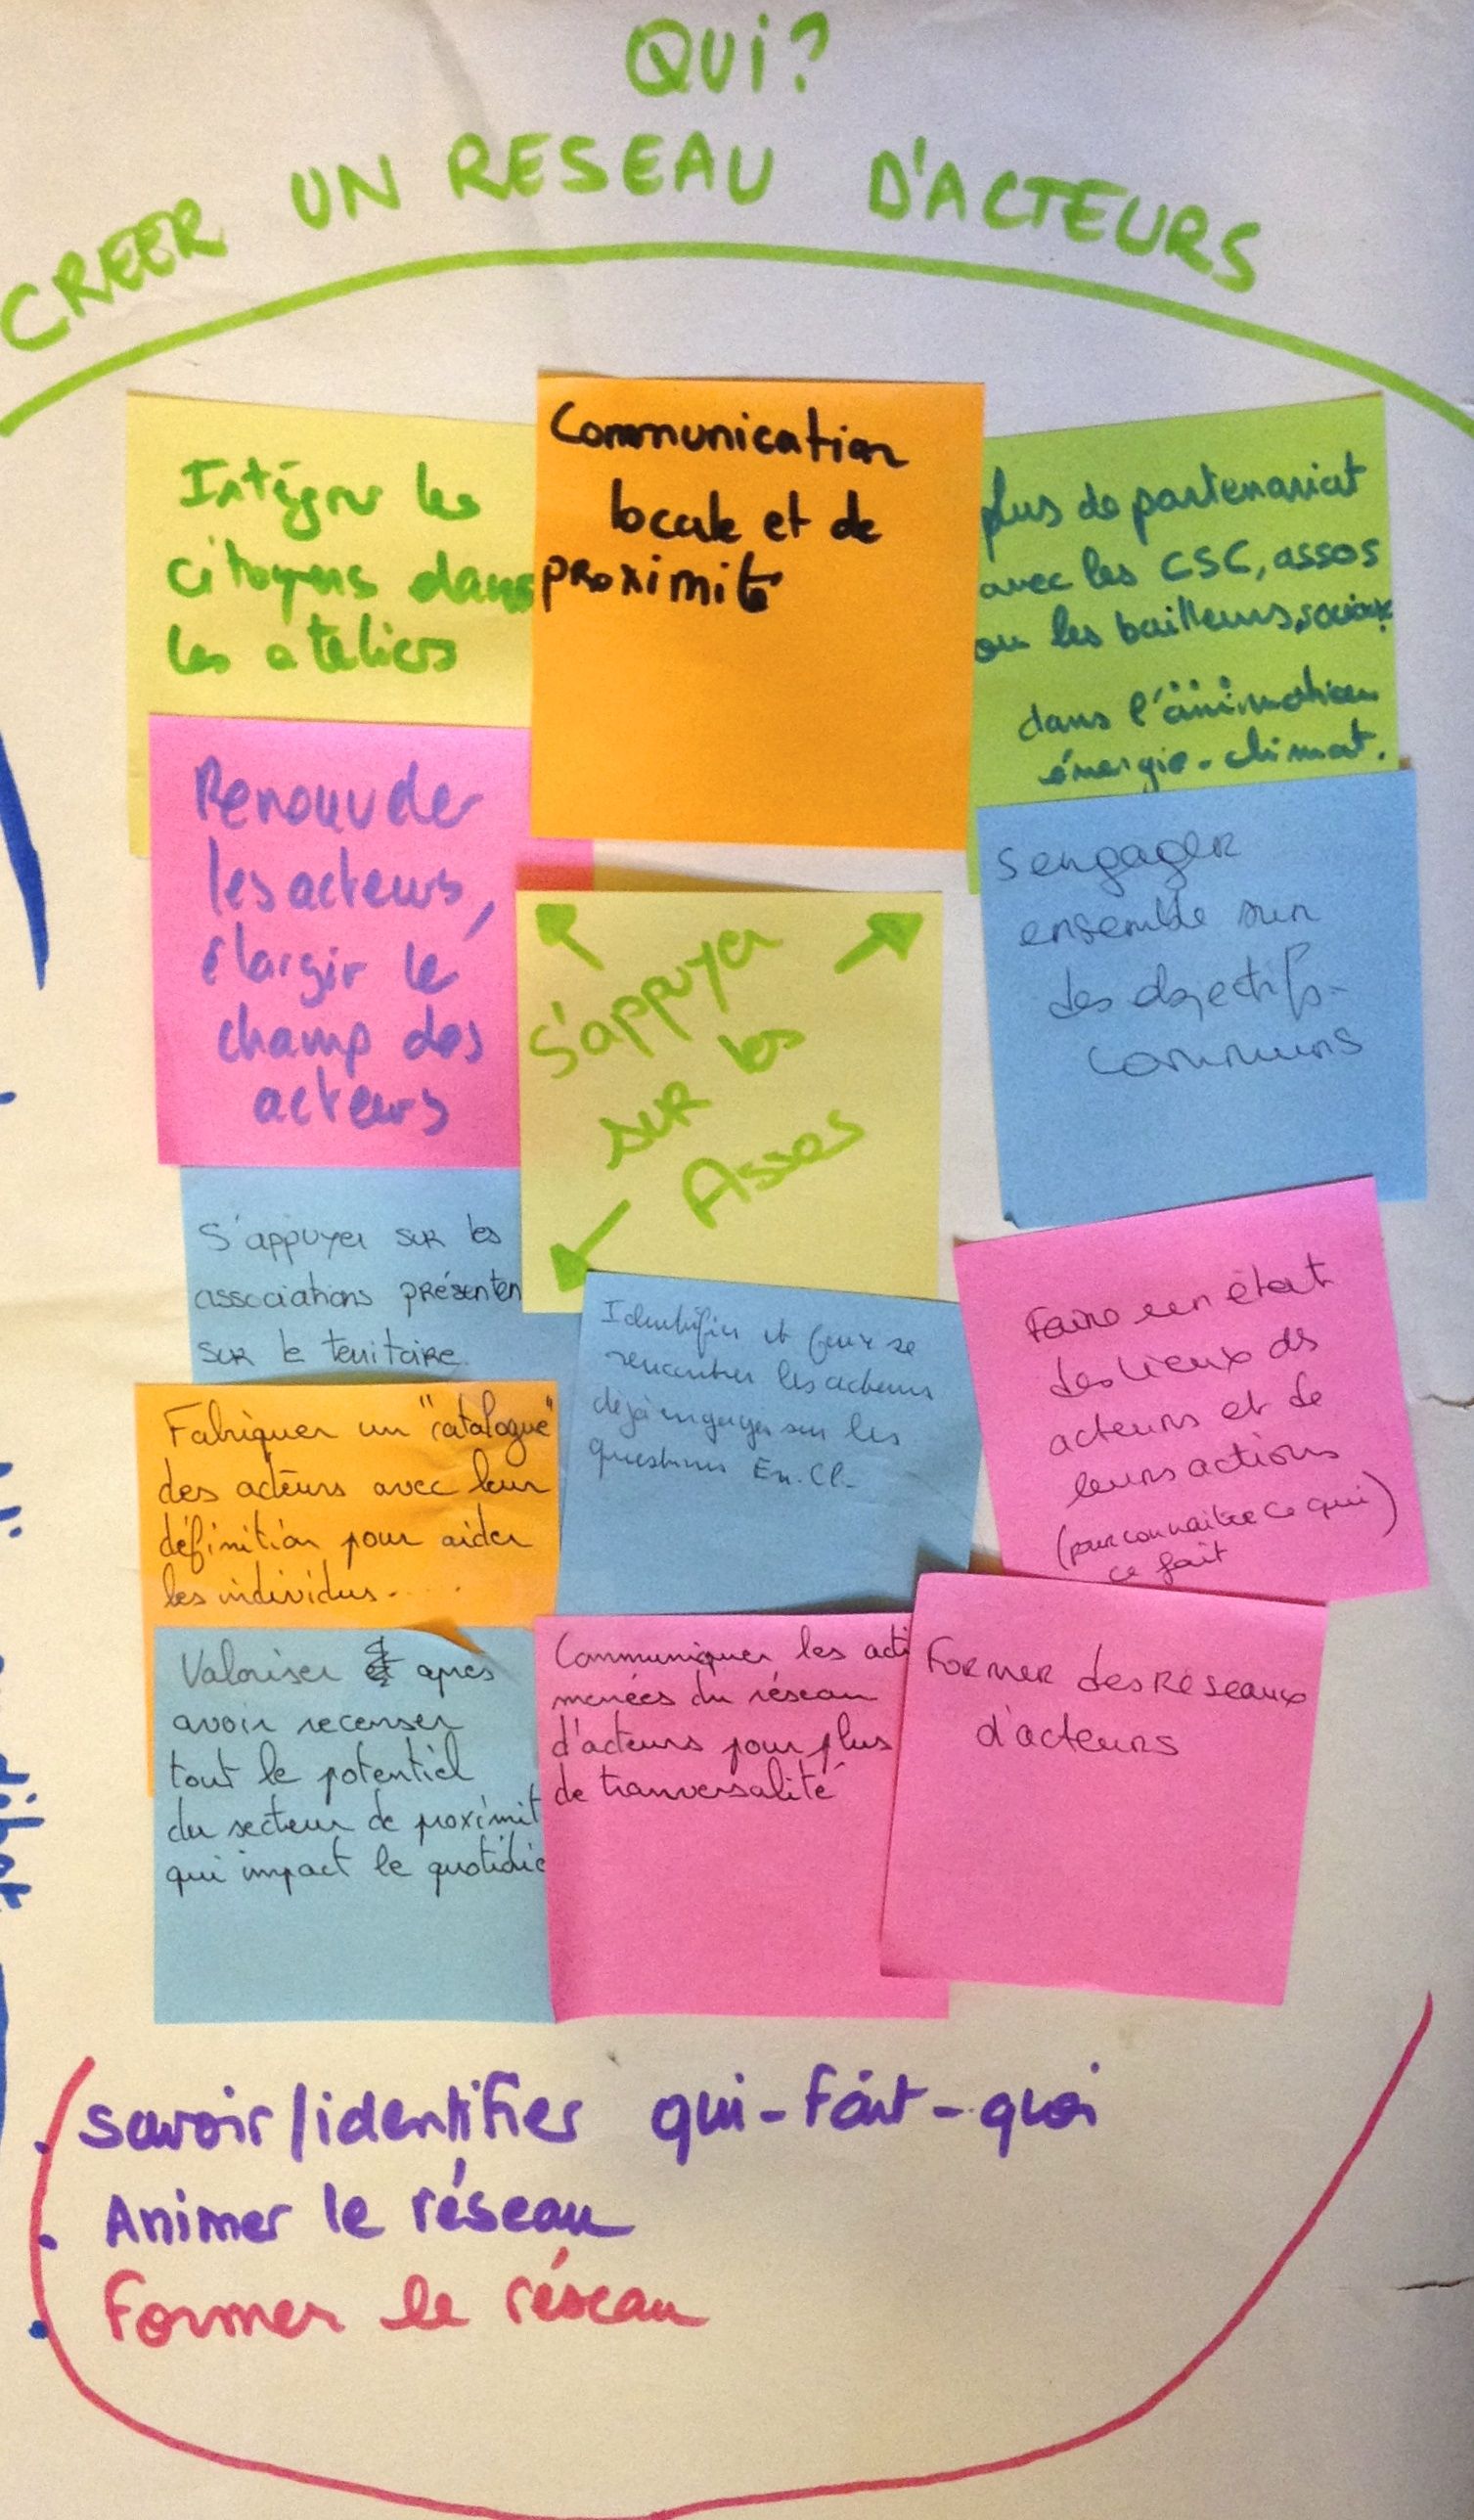 QUi?
CREER UN RESEAU D'ACTEURS
Intégrer les
citoyens dans
les ateliers
Communication
locale et de
proximité
plus de partenariat
avec les CSC, assos
ou les bailleurs sociaux
dans l'animation
énergie-climat.
Renouveler
les acteurs,
élargir le
champ des
acteurs
S'appuyer
sur les
Assos
s'engager
ensemble sur
des objectifs
communs
S'appuyer sur les
associations présenten
sur le territoire.
Identifier et faire se
rencontrer les acteurs
déjà engagés sur les
questions En. Cl.
Faire un état
des lieux ds
acteurs et de
leurs actions
(pour connaitre ce qui)
ce fait
Fabriquer un "catalogue"
des acteurs avec leur
définition pour aider
les individus....
Valoriser apres
avoir recenser
tout le potentiel
du secteur de proximit
qui impact le quotidie
Communiquer les acti
menées du réseau
d'acteurs pour plus
de tranversalité
Former des Réseaux
d'acteurs
. savoir/identifier qui-fait-quoi
. Animer le réseau
. Former le réseau